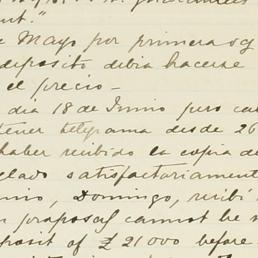 nt."
Mayo por primera
deposito debia hacerse
el precio—
dia 18 de Junio pero
tener telegrama desde 26
haber recibido la copia de
glado satisfactoriament
nio, Domingo, recibi
proposal cannot be
posit of £21000 before